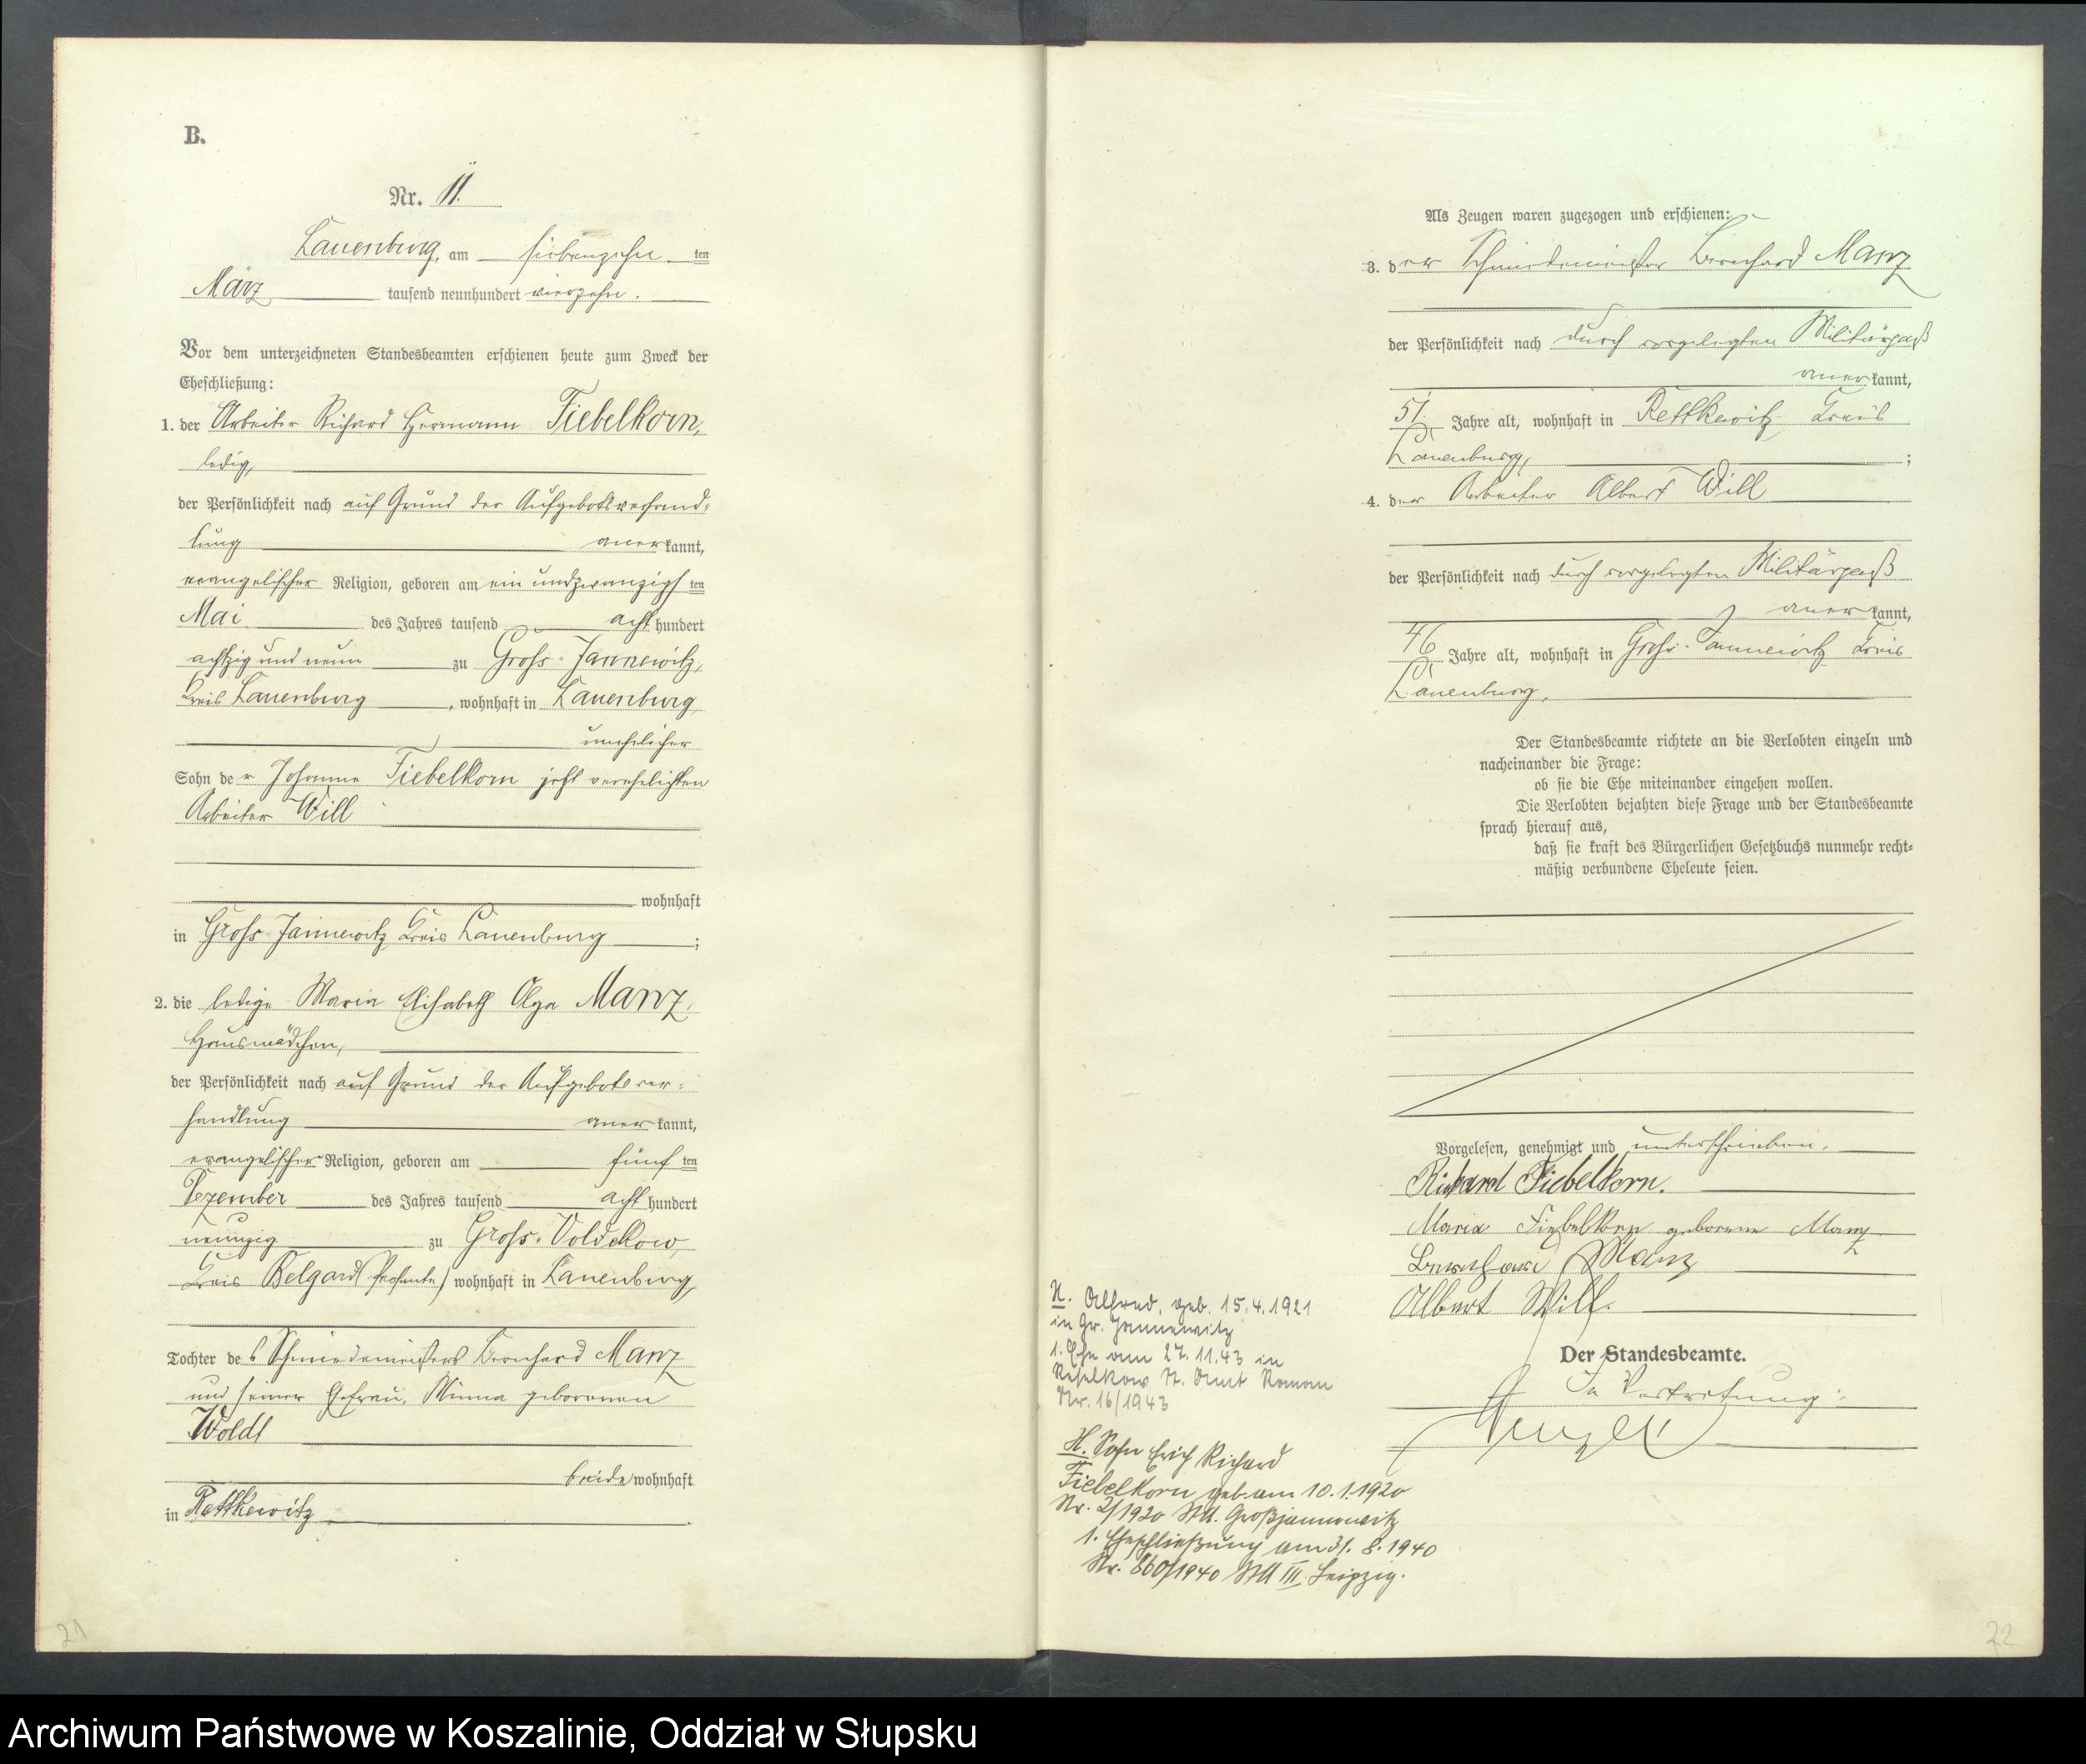 B.
Nr. 11.
Lauenburg, am siebenzehnten
März tausend neunhundert vierzehn.
Vor dem unterzeichneten Standesbeamten erschienen heute zum Zweck der
Eheschließung:
1. der Arbeiter Richard Hermann Fiebelkorn,
ledig,
der Persönlichkeit nach auf Grund der Aufgebotsverhand-
lung anerkannt,
evangelischer Religion, geboren am ein undzwanzigsten
Mai des Jahres tausend achthundert
achtzig und neun zu Gross-Jannewitz,
Kreis Lauenburg, wohnhaft in Lauenburg
unehelicher
Sohn der Johanna Fiebelkorn jetzt verehelichten
Arbeiter Will
wohnhaft
in Gross-Jannewitz Kreis Lauenburg;
2. die ledige Maria Elisabeth Olga Manz,
Hausmädchen,
der Persönlichkeit nach auf Grund der Aufgebotsver-
handlung anerkannt,
evangelischer Religion, geboren am fünften
Dezember des Jahres tausend achthundert
neunzig zu Gross-Voldekow,
Kreis Belgard (Persante) wohnhaft in Lauenburg,
Tochter des Schmiedemeisters Bernhard Manz
und seiner Ehefrau, Minna geborenen
Woldt
beide wohnhaft
in Rettkewitz.
21
Als Zeugen waren zugezogen und erschienen:
3. der Schmiedemeister Bernhard Manz
der Persönlichkeit nach durch vorgelegten Militärpaß
anerkannt,
51 Jahre alt, wohnhaft in Rettkewitz, Kreis
Lauenburg,;
4. der Arbeiter Albert Will
der Persönlichkeit nach durch vorgelegten Militärpaß
anerkannt,
46 Jahre alt, wohnhaft in Gross-Jannewitz Kreis
Lauenburg.
Der Standesbeamte richtete an die Verlobten einzeln und
nacheinander die Frage:
ob sie die Ehe miteinander eingehen wollen.
Die Verlobten bejahten diese Frage und der Standesbeamte
sprach hierauf aus,
daß sie kraft des Bürgerlichen Gesetzbuchs nunmehr recht-
mäßig verbundene Eheleute seien.
Vorgelesen, genehmigt und unterschrieben.
Richard Fiebelkorn.
Maria Fiebelkorn geborene Manz
Bernhard Manz
Albert Will.
Der Standesbeamte.
In Vertretung:
H. Alfred, geb. 15.4.1921
in Gr. Jannewitz
1. Ehe am 27.11.43 in
St. Amt Roman
Nr. 16/1943
H. Sohn Erich Richard
Fiebelkorn geb. am 10.1.1920
Nr. 2/1920 StA. Großjannewitz
1. Eheschließung am 31.8.1940
Nr. 860/1940 StA III Leipzig.
22
Archiwum Państwowe w Koszalinie, Oddział w Słupsku